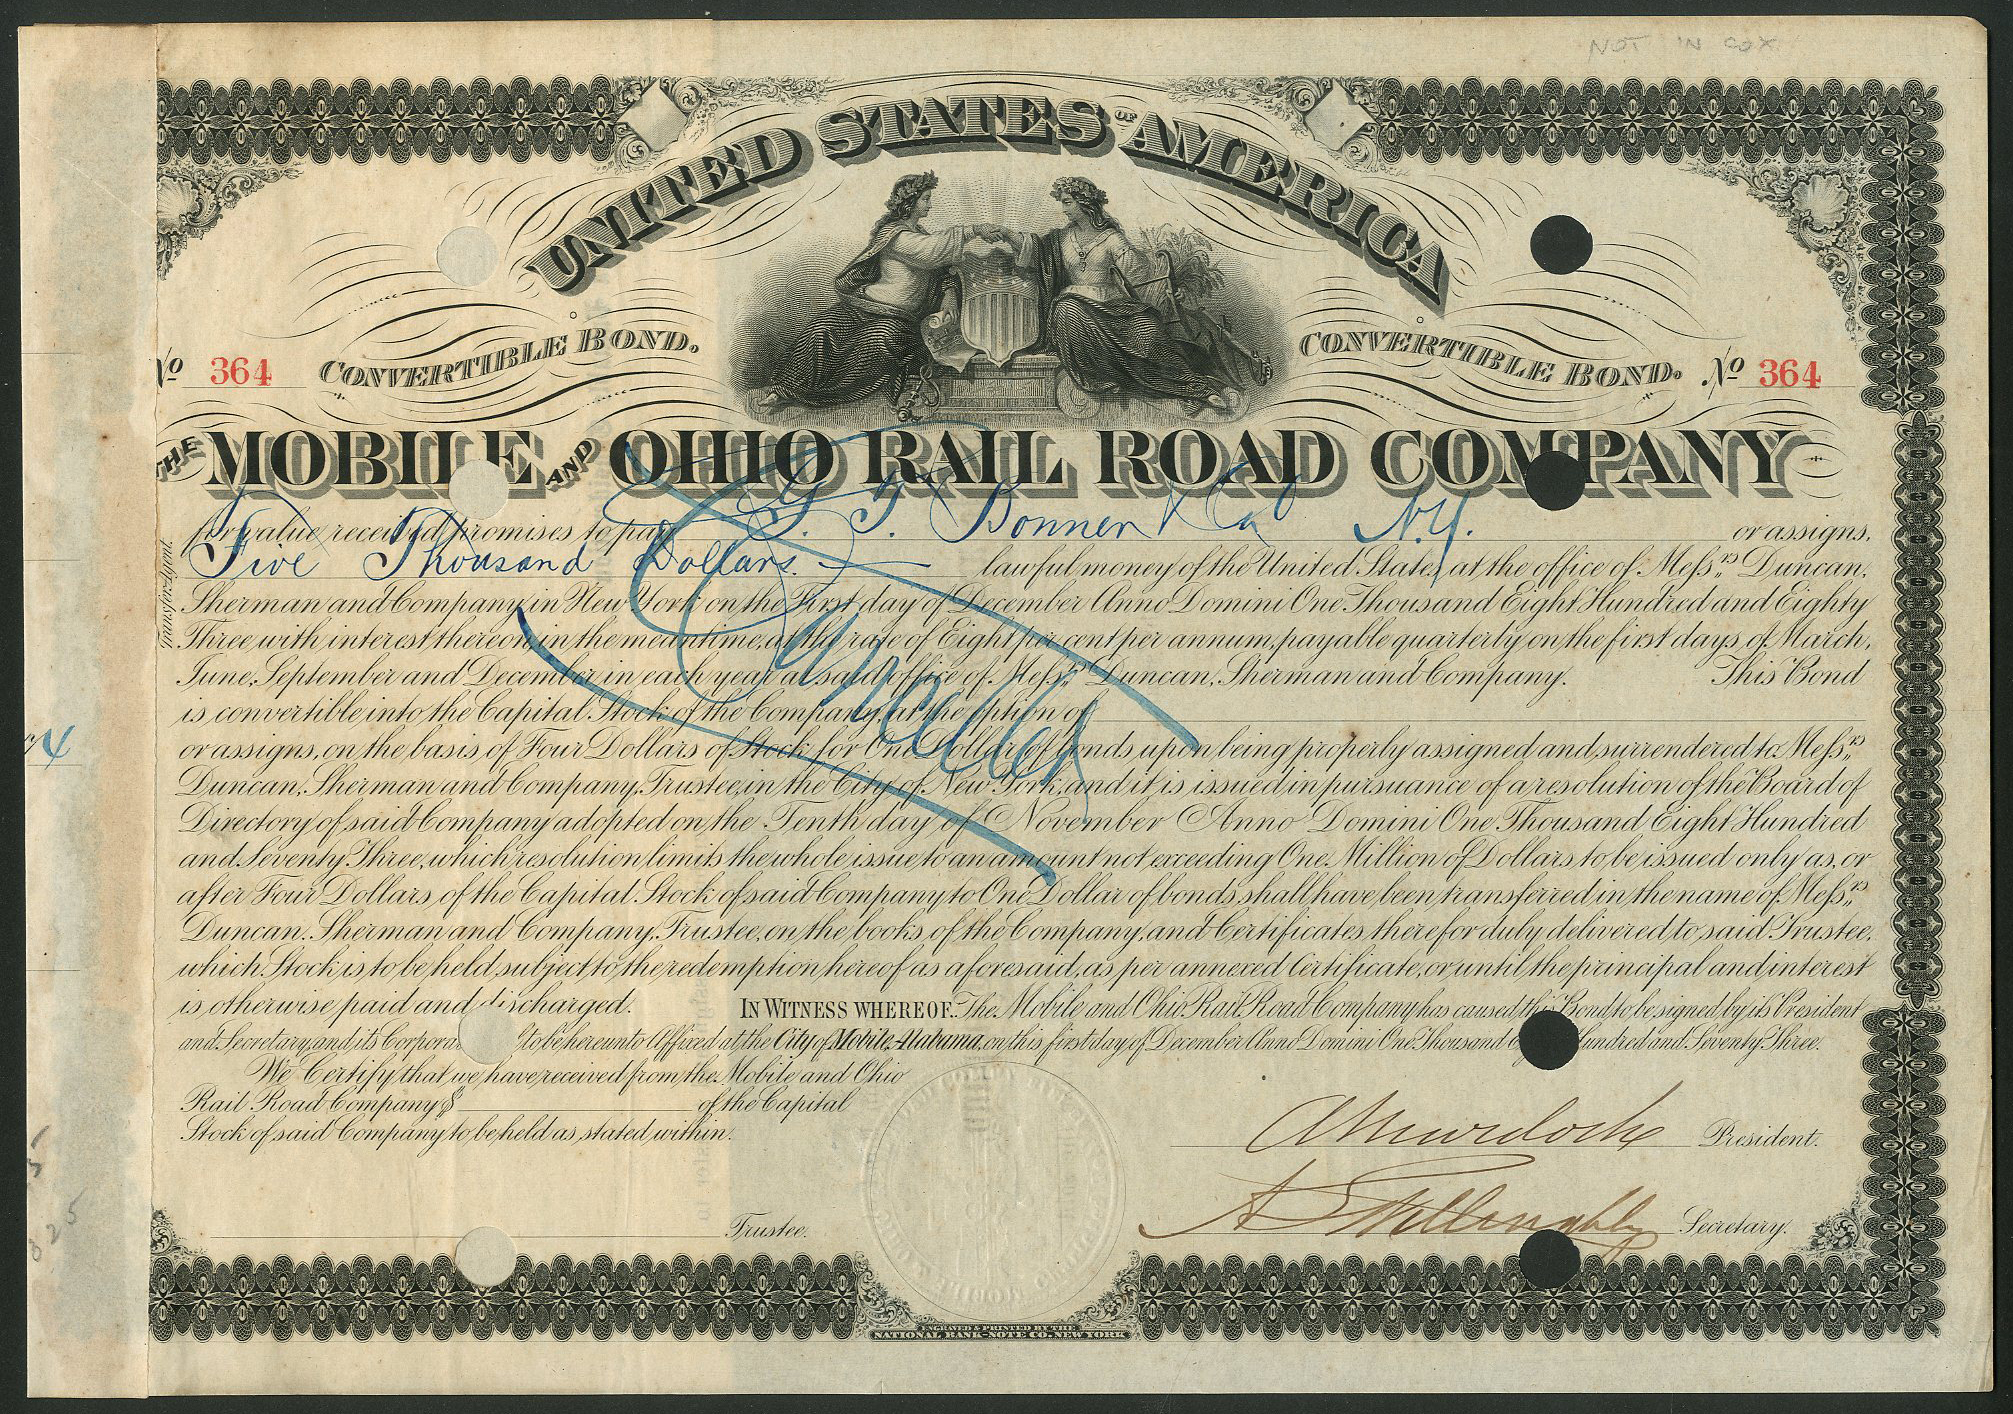 NOT IN COX
UNITED STATES OF AMERICA
No 364 CONVERTIBLE BOND. CONVERTIBLE BOND. No 364
THE MOBILE AND OHIO RAIL ROAD COMPANY
for value received promises to pay Bonner & Co N.Y. or assigns,
Five Thousand Dollars. lawful money of the United States, at the office of Mefsrs Duncan,
Sherman and Company, in New York on the First day of December Anno Domini One Thousand Eight Hundred and Eighty
Three with interest thereon, in the meantime, at the rate of Eight per cent per annum, payable quarterly on the first days of March,
June, September and December in each year at said office of Mefsrs Duncan, Sherman and Company. This Bond
is convertible into the Capital Stock of the Company, at the option of
or assigns, on the basis of Four Dollars of Stock for One Dollar of Bonds upon being properly assigned and surrendered to Mefsrs
Duncan, Sherman and Company, Trustee, in the City of New York, and it is issued in pursuance of a resolution of the Board of
Directory of said Company adopted on the Tenth day of November Anno Domini One Thousand Eight Hundred
and Seventy Three, which resolution limits the whole issue to an amount not exceeding One Million of Dollars to be issued only as, or
after Four Dollars of the Capital Stock of said Company to One Dollar of bonds, shall have been transferred in the name of Mefsrs
Duncan, Sherman and Company, Trustee, on the books of the Company, and Certificates therefor duly delivered to said Trustee,
which Stock is to be held, subject to the redemption hereof as aforesaid, as per annexed Certificate, or until the principal and interest
is otherwise paid and discharged. IN WITNESS WHEREOF. The Mobile and Ohio Rail Road Company has caused this Bond to be signed by its President
and Secretary, and its Corpora to be hereunto Affixed at the City of Mobile Alabama, on this first day of December Anno Domini One Thousand Hundred and Seventy Three.
We Certify that we have received from the Mobile and Ohio
Rail Road Company $ of the Capital
Stock of said Company to be held as stated within.
A Murdock President.
Trustee. Secretary.
Cancelled
ENGRAVED & PRINTED BY THE
NATIONAL BANK-NOTE CO. NEW YORK
4
5
325